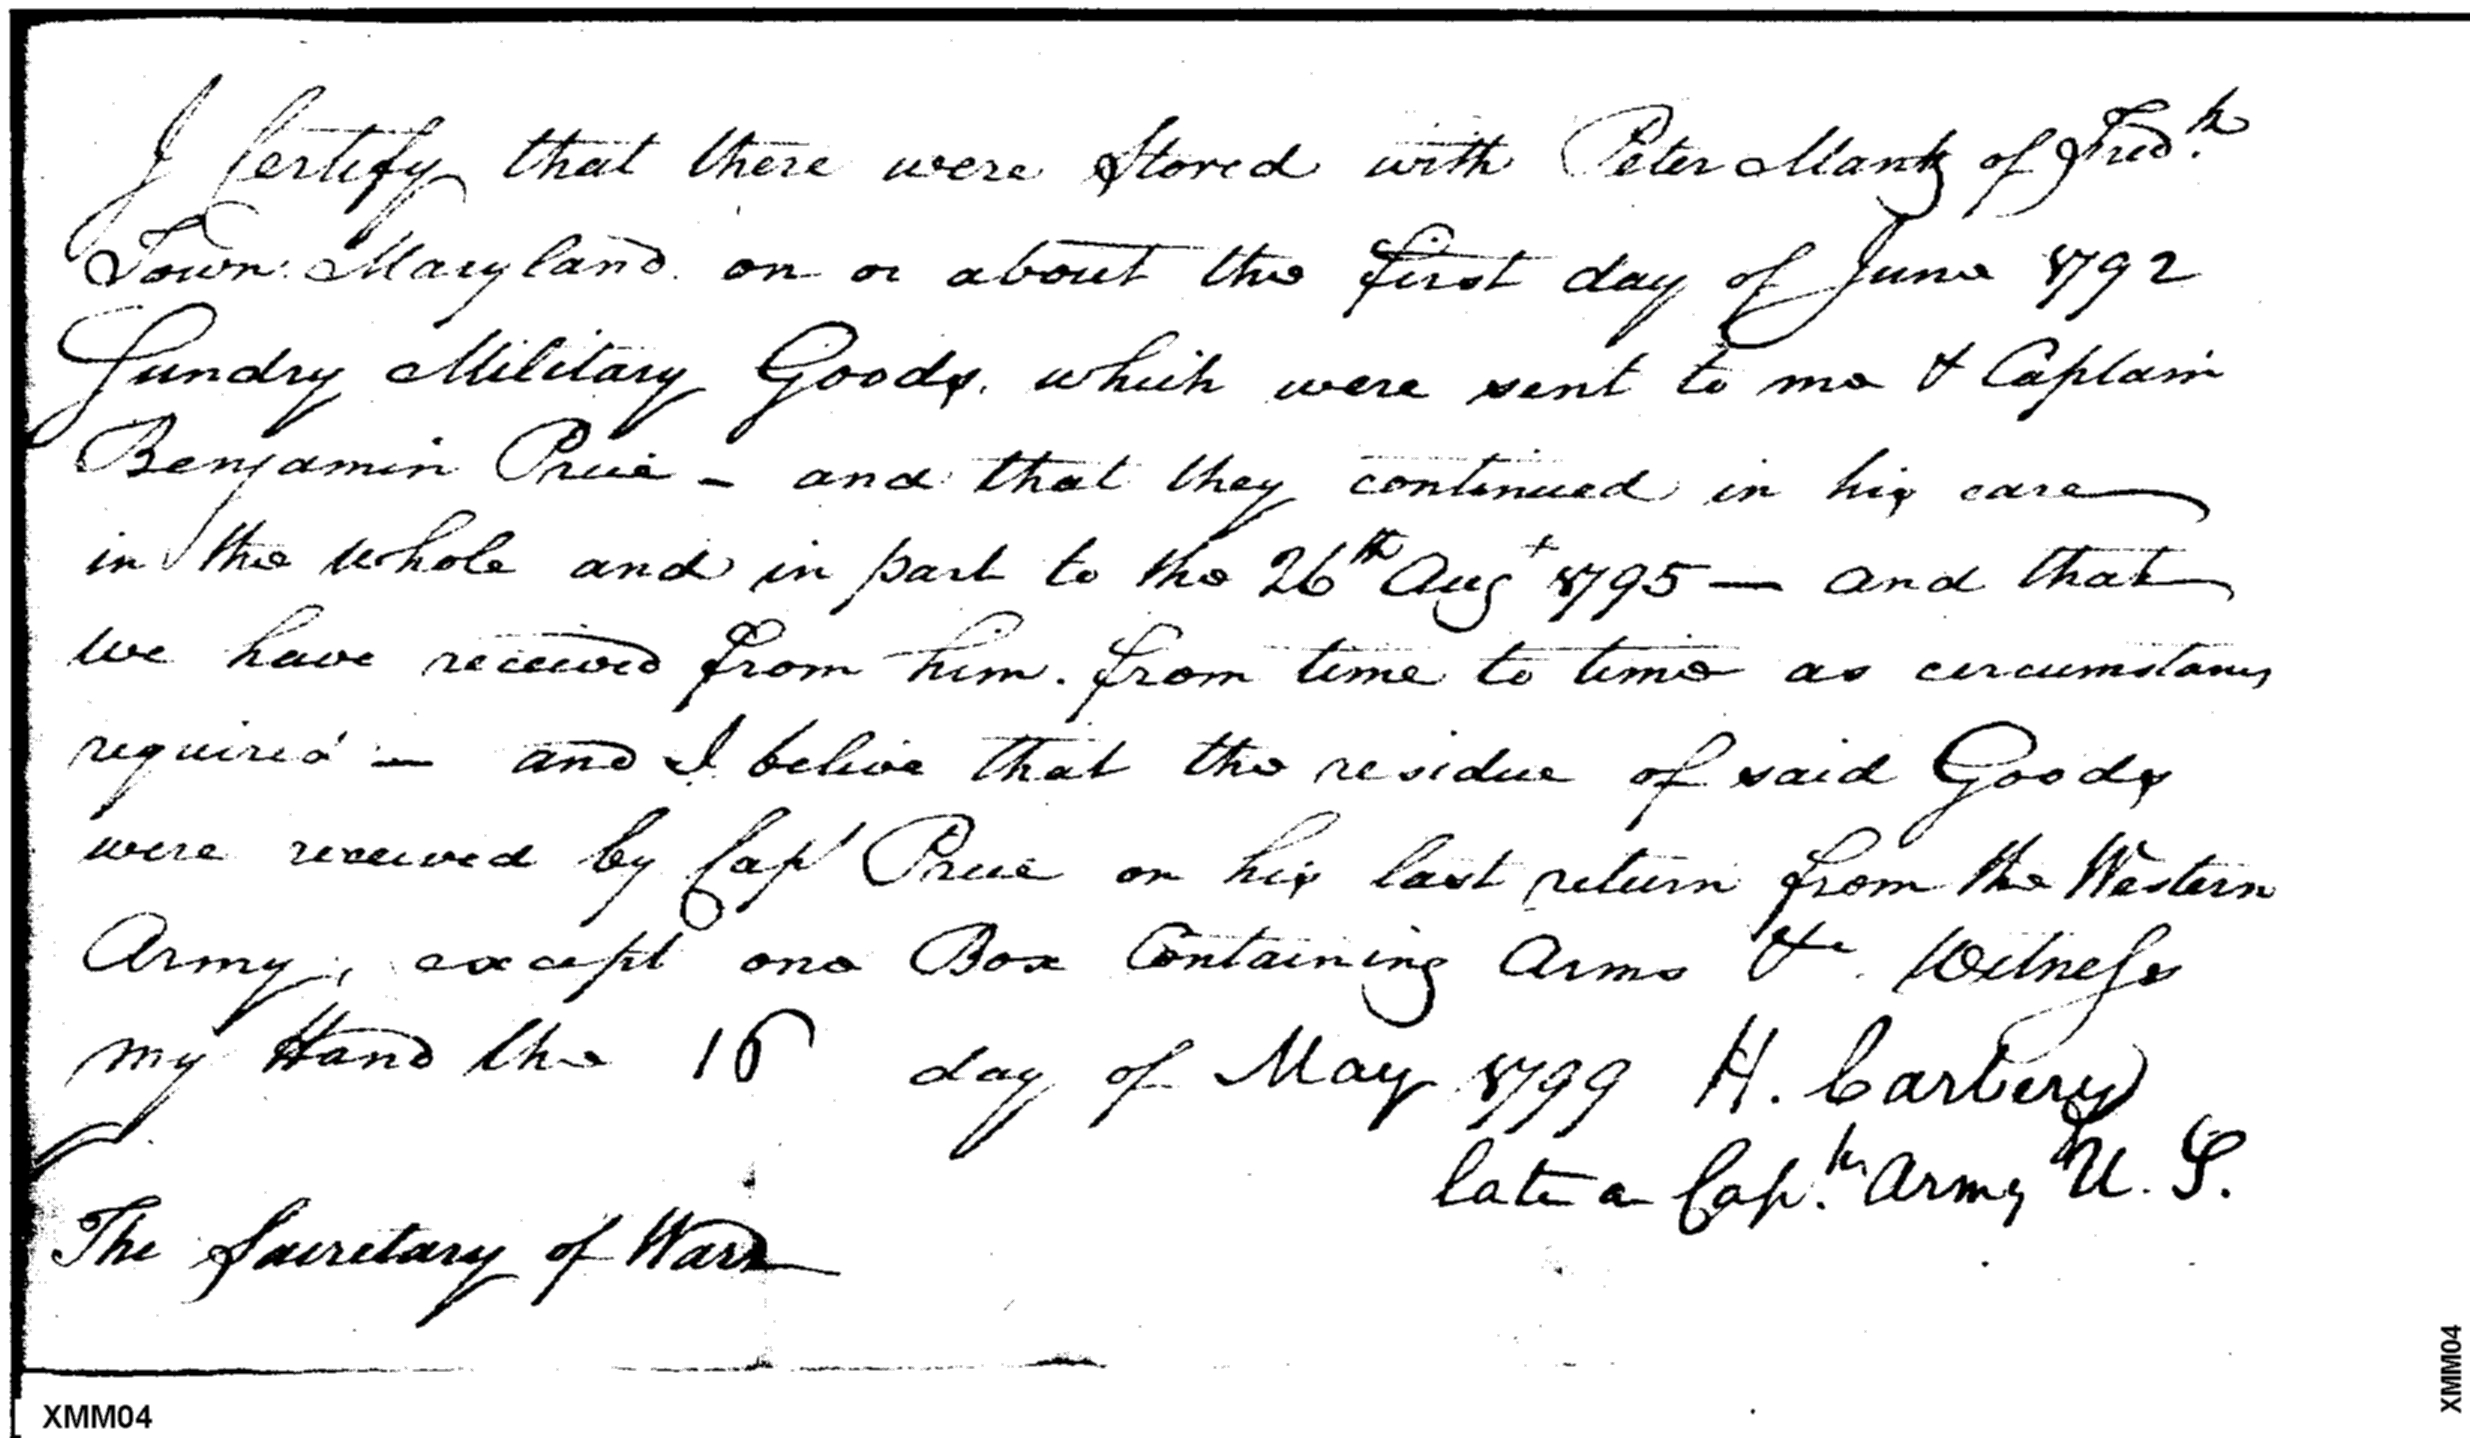 I Certify that there were Stored with Peter Mantz of Fredk.
Town Maryland on or about the first day of June 1792
Sundry Military Goods, which were sent to me & Captain
Benjamin Price – and that they continued in his care
in the whole and in part to the 26th Augt 1795 — and that
we have received from him. from time to time as circumstances
required — and I belive that the residue of said Goods
were received by Capt Price on his last return from the Western
Army, except one Box Containing Arms &c. Witness
my Hand the 16 day of May 1799 H. Carbery
late a Capt. Army U. S.
The Secretary of Warr
XMM04
XMM04